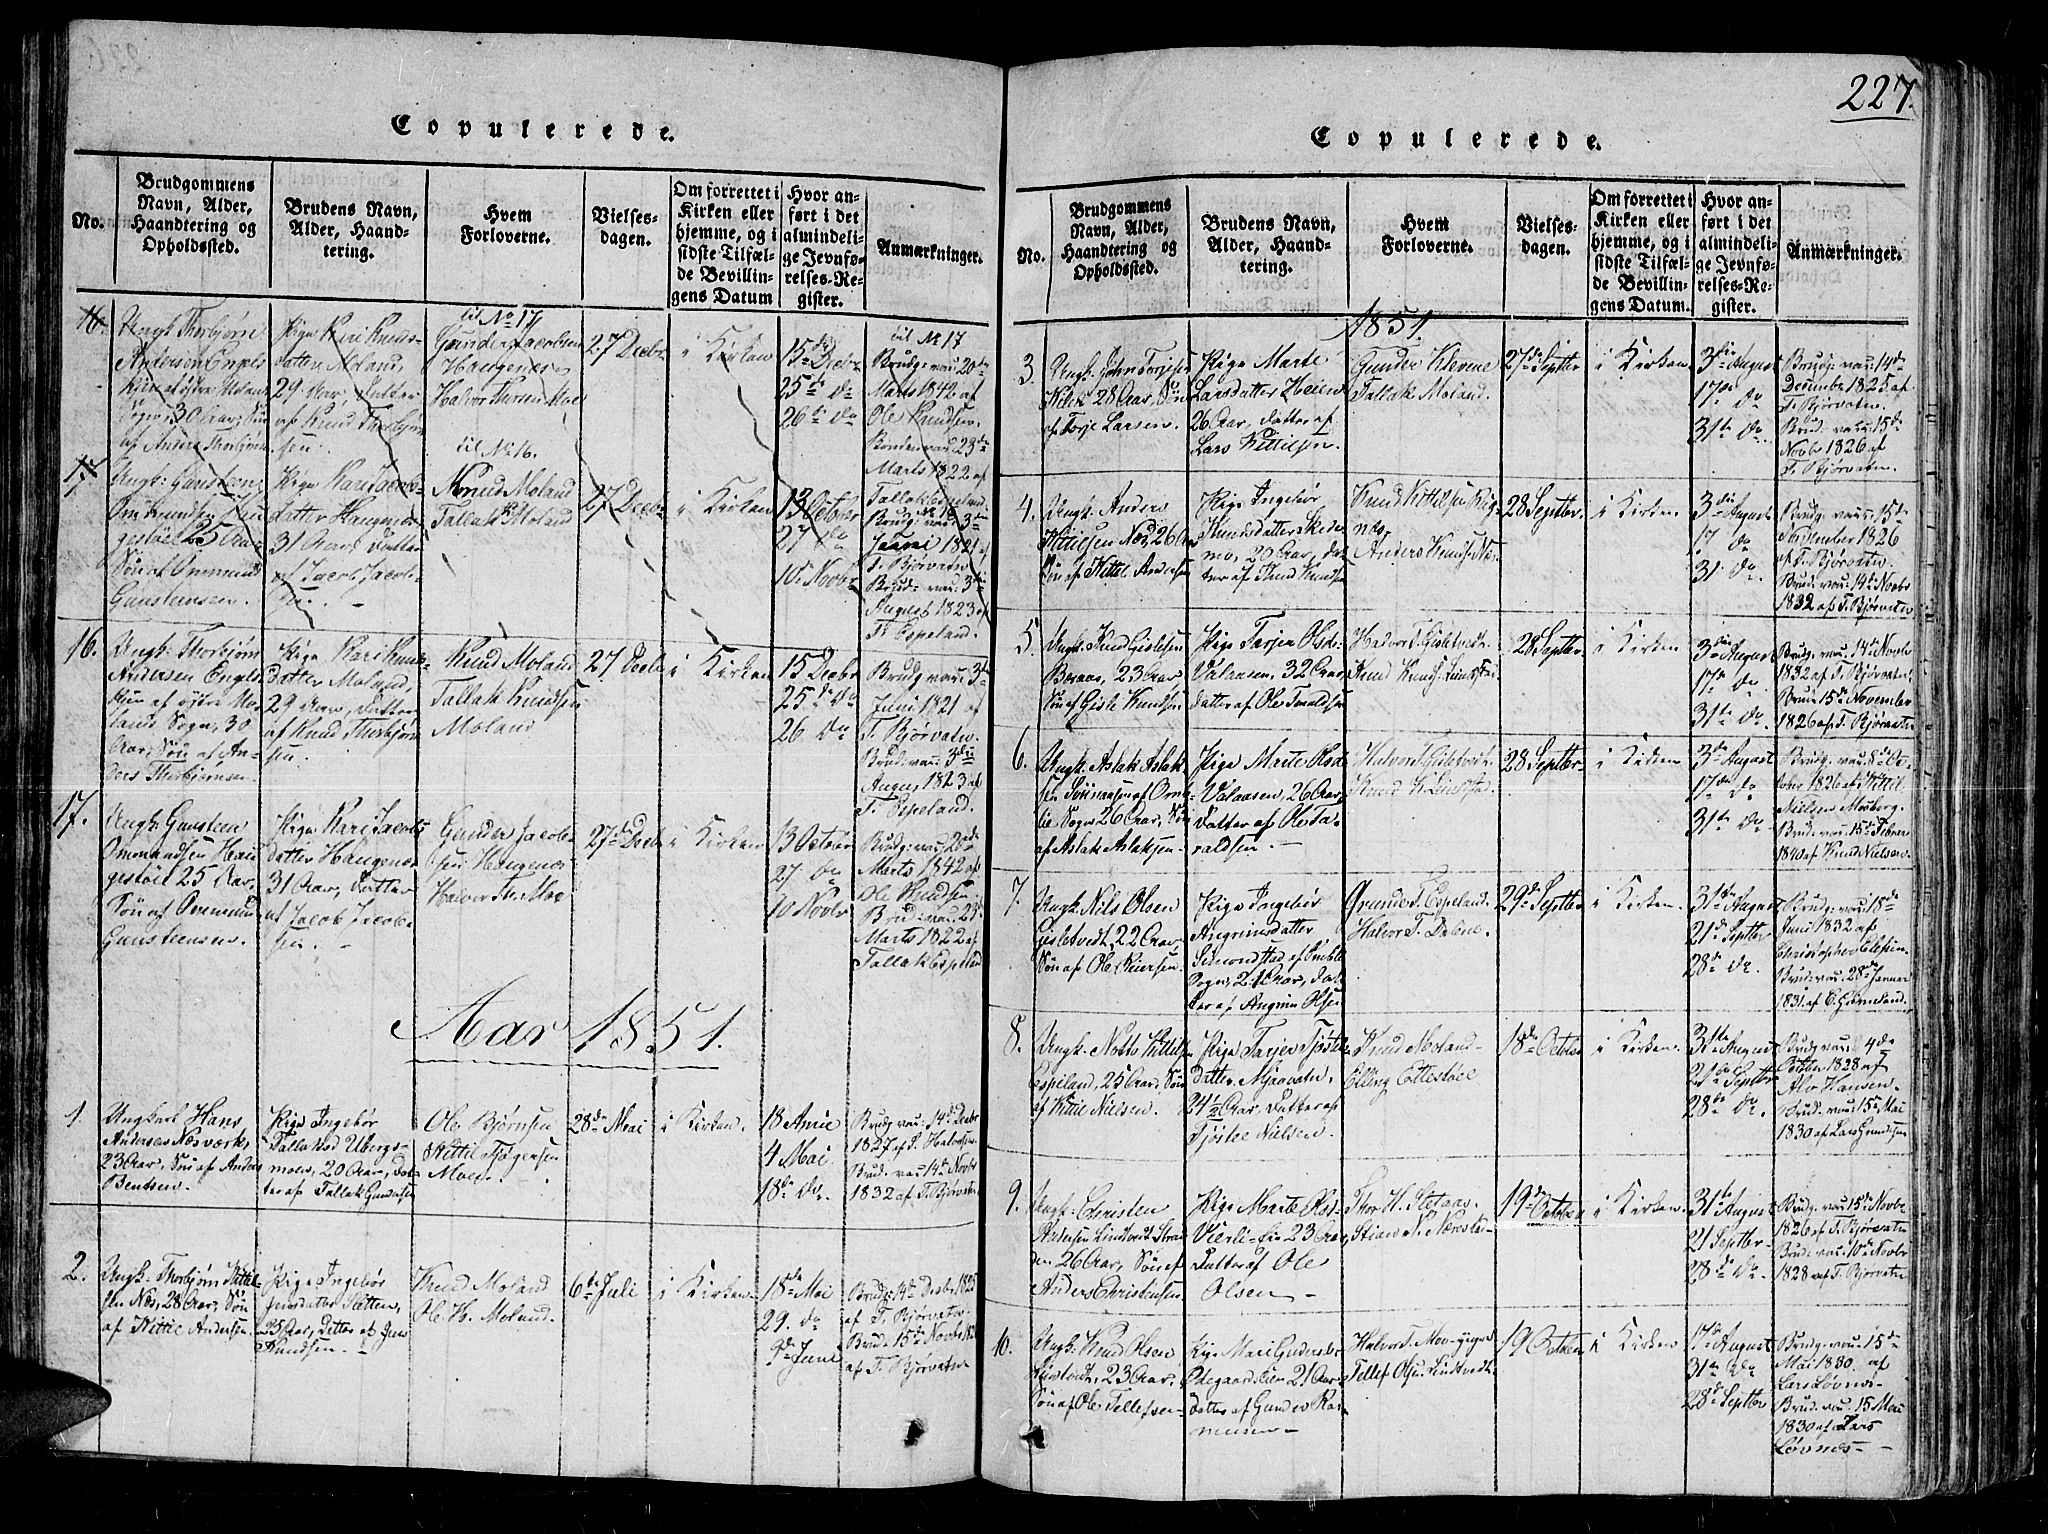 227.
Copulerede.
No.
Brudgommens
Navn, Alder,
Haandtering og
Opholdssted.
Brudens Navn,
Alder, Haand-
tering.
Hvem
Forloverne.
Vielses-
dagen.
Om forrettet i
Kirken eller
hjemme, og i
sidste Tilfæl-
de Bevillin-
gens Datum
Hvor an-
ført i det
almindeli-
ge Jevnfø-
relses-Re-
gister.
Anmærkninger.
16.
Ungk. Thorbjørn
Andersen Engels
af østre Moland
Sogn, 30 Aar, Søn
af Anders Thorbjørnsen
Pige Kari Knuds-
datter Moland,
29 Aar, Datter
af Knud Thorbjørn
sen.
til No 17
Gunder Jacobsen
Haugenes
Halvor Thorsen Moe
27 Decbr
i Kirken
15de Decbr
25de do
26de do
til No 17
Brudg. vac: 20de
Marts 1842 af
Ole Knudsen.
Bruden vac: 23de
Marts 1822 af
Tallak Espeland
17.
Ungk. Gunsteen
Ommundsen Hau
gestøel 25 Aar
Søn af Ommund
Gunsteensen.
Pige Kari Jacobs-
datter Haugenæs
31 Aar, Datter
af Jacob Jacob-
sen. -
til No 16.
Knud Moland
Tallak K. Moland
27 Decbr
i Kirken
13 Octobr
27 do
10. Novbr
No 16
Brudg: vac: 3die
Juni 1821 af
T. Bjørvatn
Brud: vac: 3die
August 1823 af
T. Espeland.
16.
Ungk: Thorbjørn
Andersen Engels
af østre Mo-
land Sogn, 30
Aar, Søn af An-
ders Thorbjørnsen.
Pige Kari Knuds-
datter Moland,
29 Aar, Datter
af Knud Thorbjørn
sen.
Knud Moland
Tallak Knudsen
Moland
27 Decbr
i Kirken
15 Decbr
25de do
26 do
Brudg: vac: 3die
Juni 1821 af
T. Bjørvatn.
Brud: vac: 3die
August 1823 af
T. Espeland.
17.
Ungk: Gunsteen
Ommundsen Hau
gestøel 25 Aar.
Søn af Ommund
Gunsteensen.
Pige Kari Jacobs
datter Haugenæs
31 Aar, Datter
af Jacob Jacob-
sen. -
Gunder Jacob-
sen Haugenæs
Halvor Th: Moe
27de Decbr
i Kirken
13 Octobr
27 do
10 Novbr
Brudg: vac: 20de
Marts 1842 af
Ole Knudsen
Brud: vac: 23de
Marts 1822 af
Tallak Espeland
Aar 1851.
1.
Ungkarl Hans
Andersen Næsværk,
23 Aar, Søn af Anders
Bentsen.
Pige Ingebør
Tallaksd Ubergs-
moen, 20 Aar, Dat-
ter af Tallak Gundersen
Ole Bjørnsen
Kittil Tjøgersen
Moen.
28de Mai
i Kirken
18 April
4 Mai
18de do.
Brudg: vac: 14de Decbr
1827 af S. Halvorsen.
Brud: vac: 14de Novbr
1832 af T. Bjørvatn
2.
Ungk: Thorbjørn Kittil-
sen Næs, 28 Aar, Søn
af Kittil Andersen.
Pige Ingebør
Jensdatter Sletten,
25 Aar, Datter af Jens
Knudsen. -
Knud Moland
Ole K. Moland.
6te Juli
i Kirken
18de Mai
29. do
9de Juni
Brudg: 14de Decbr 1825
af T. Bjørvatn.
Brud: 15de Novbr 1826
af T. Bjørvatn
Copulerede.
No.
Brudgommens
Navn, Alder,
Haandtering og
Opholdssted.
Brudens Navn,
Alder, Haand-
tering.
Hvem
Forloverne.
Vielses-
dagen.
Om forrettet i
Kirken eller
hjemme, og i
sidste Tilfæl-
de Bevillin-
gens Datum.
Hvor an-
ført i det
almindeli-
ge Jevnfø-
relses-Re-
gister.
Anmærkninger.
1851
3.
Ungk: John Torjesen
28 Aar, Søn
af Torje Larsen.
Pige Marte
Larsdatter Heien
26 Aar, Datter af
Lars Kittilsen.
Gunder Klevene
Tallak Moland.
27de Septbr
i Kirken
3die August
17de do
31te do.
Brudg: vac: 14de
December 1825 af
T. Bjørvatn.
Brud: vac: 15de
Novbr 1826 af
T. Bjørvatn.
4.
Ungk: Anders
Kittilsen Næs, 26 Aar
Søn af Kittil Andersen
Pige Ingebør
Knudsdatter Skede
mo, 20 Aar, Dat-
ter af Knud Knudsen
Anders Knuds: Næs
28 Septbr.
i Kirken
3die August
17 do
31 do.
Brudg: vac: 15de
November 1826
af T. Bjørvatn
Brud: vac: 14de Novbr
1832 af T. Bjørvatn
5.
Ungk: Knud Gislesen
Beraas, 23 Aar
Søn af Gisle Knudsen
Pige Tarjer Olsd-
Valaasen, 32 Aar,
Datter af Ole Taraldsen
Halvor T. Gisletvedt
28 Septbr
i Kirken
3die August
17de do.
31te do.
Brudg: vac: 14de Novbr
1832 af T. Bjørvatn
Brud: 15de November
1826 af T. Bjørvatn
6.
Ungk: Aslak Aslak-
sen
Sogn 26 Aar, Søn
af Aslak Aslaksen.
Pige Marte Olsd
Valaasen, 26 Aar,
Datter af Ole Ta-
raldsen. -
Halvor T. Gisletvedt
28 Septbr-
i Kirken
3die August
17de do
31te do.
Brudg: vac: 8de Oc-
tober 1826 af Kittil
Nielsen Mosberg.
Brud: vac: 15de Febrer
1840 af Knud Nielsen.
7.
Ungk: Nils Olsen
Gisletvedt, 22 Aar,
Søn af Ole Peersen.
Pige Ingebør
Angrimsdatter
Simonsted af Omble
Sogn, 21 Aar, Dat
ter af Angrim Olsen
Grunde T. Espeland.
Halvor T. Dalene.
29de Septbr
i Kirken.
31te August
21de Septbr
28de do.
Brudg: vac: 18de
Juni 1832 af
Christopher Ellefsen
Brud: vac: 28de Januar
1831 af E. Grimeland.
8.
Ungk: Notto Kittilsen
Espeland, 25 Aar, Søn
af Kittil Nielsen.
Pige Tarjer Tjøstels-
datter Myrvatn,
24½ Aar, Datter af
Tjøstel Nielsen.
Knud Moland-
Elling Ettestøel
18de Octobr
i Kirken
31te August
21de Septbr
28de do.
Brudg: vac: 4de
Octbr 1828 af
Alv Hansen.
Brud: vac: 15de Mai
1830 af Lars Grundesen
9.
Ungk: Christen
Andersen Lindtvedt Stran
den 26 Aar, Søn af
Anders Christensen
Pige Marte Olsd-
Vierli- 23 Aar,
Datter af Ole
Olsen -
Thor H. Sletaas,
19de October
i Kirken.
31te August
21 Septbr-
28de do
Brudg: vac: 15de Novbr
1826 af T. Bjørvatn
Brud: vac: 10de Novbr
1828 af T. Bjørvatn
10.
Ungk: Knud Olsen
Lindtvedt, 23 Aar,
Søn af Ole Tellefsen-
Pige Mari Gundersd-
Ødegaardslien 21 Aar
Datter af Gunder Ras-
mussen -
Halvor T. Mo
Tellef Olsen Lindtvedt
19 October
i Kirken
17de August
31te do
28de Septbr
Brudg: vac: 15de
Mai 1830 af
Lars Løvnes-
Brud: vac: 15 Mai
1830 af Lars
Løvnes- -